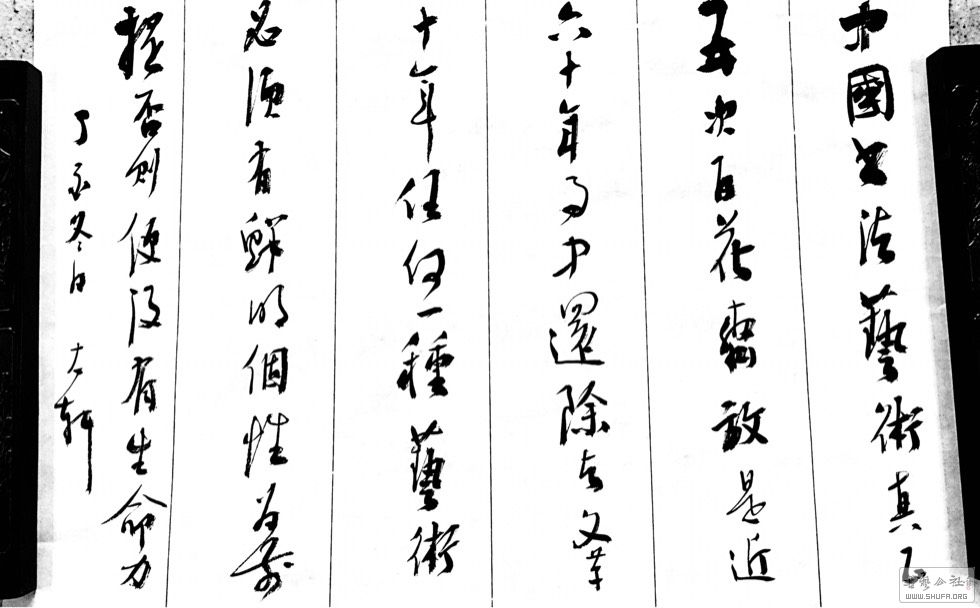 中國書法藝術真正
再次百花齊放是近
六十年的事還除去文革
十年任何一種藝術
必須有鮮明個性為前
提否則便沒有生命力
丁亥冬日 軒
書藝公社
WWW.SHUFA.ORG